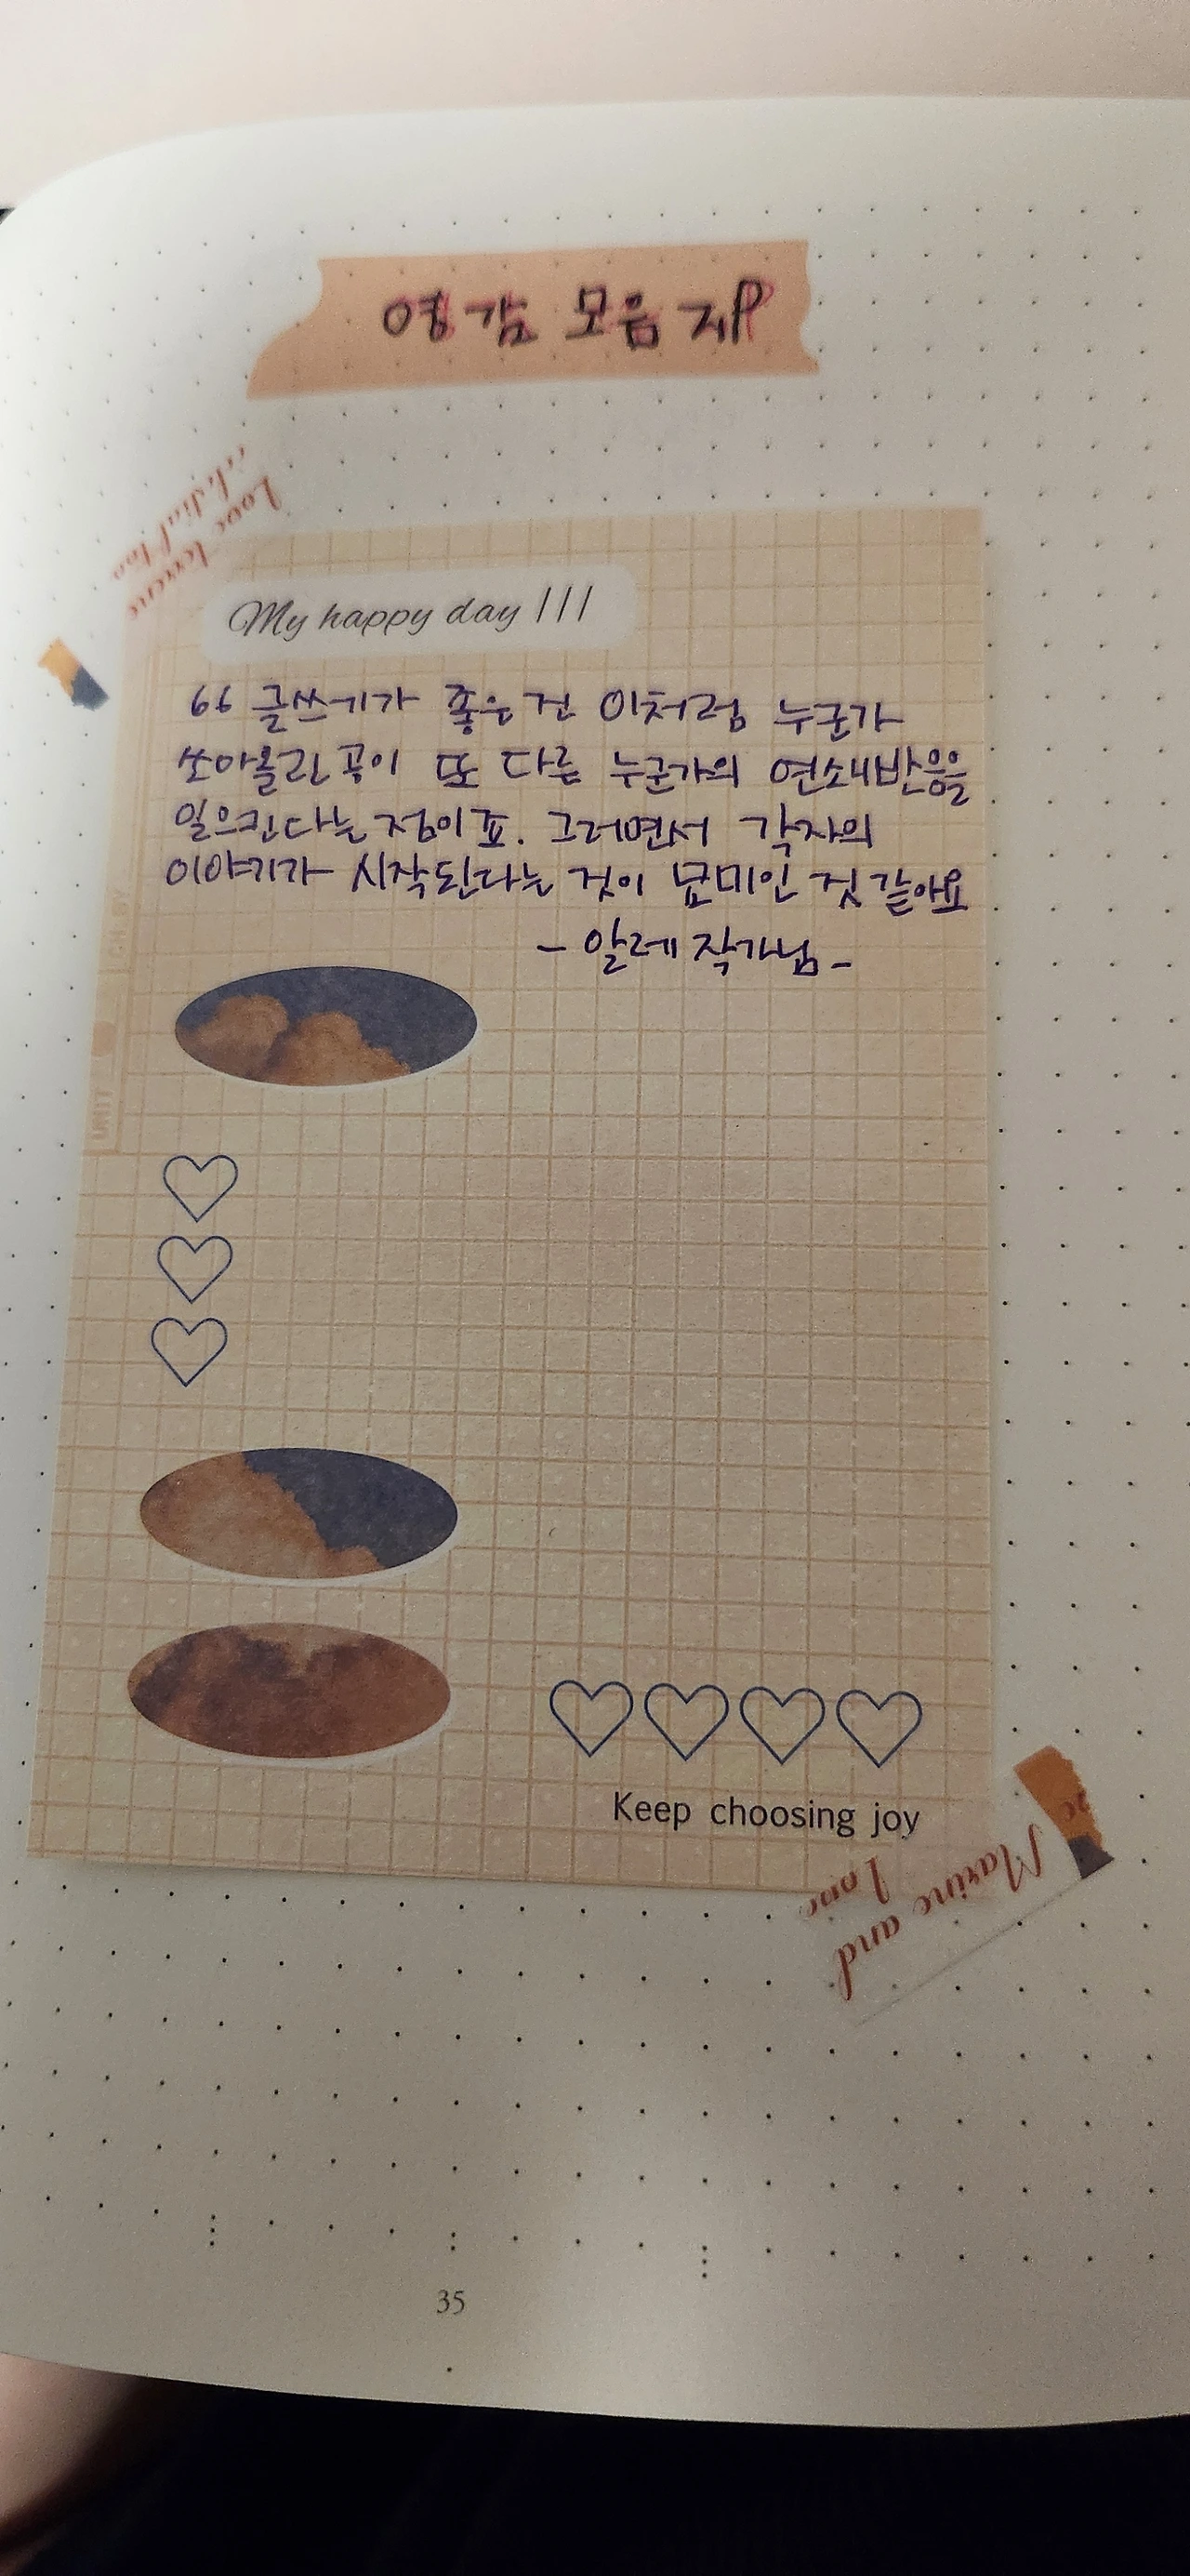 영감 모음 zip
Love terrene
My happy day !!!
66 글쓰기가 좋은 건 이처럼 누군가
쏘아올린 공이 또 다른 누군가의 연쇄반응을
일으킨다는 점이죠. 그러면서 각자의
이야기가 시작된다는 것이 묘미인 것 같아요
- 알레 작가님 -
UNIT
Keep choosing joy
Marine and
Love
35